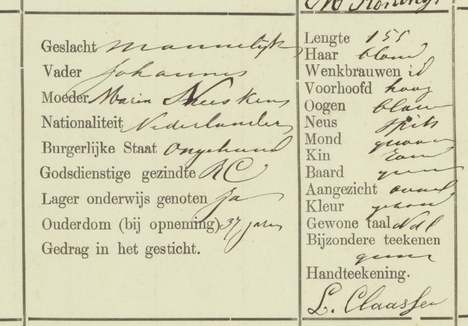 Geslacht mannelijk
Vader Johannes
Moeder Maria Neeskens
Nationaliteit Nederlander
Burgerlijke Staat Ongehuwd
Godsdienstige gezindte RC
Lager onderwijs genoten ja
Ouderdom (bij opneming) 37 jaren
Gedrag in het gesticht.
Lengte 155
Haar blond
Wenkbrauwen id
Voorhoofd hoog
Oogen blauw
Neus spits
Mond gewoon
Kin rond
Baard geen
Aangezicht ovaal
Kleur gezond
Gewone taal Ned
Bijzondere teekenen
geene
Handteekening.
L. Claassen